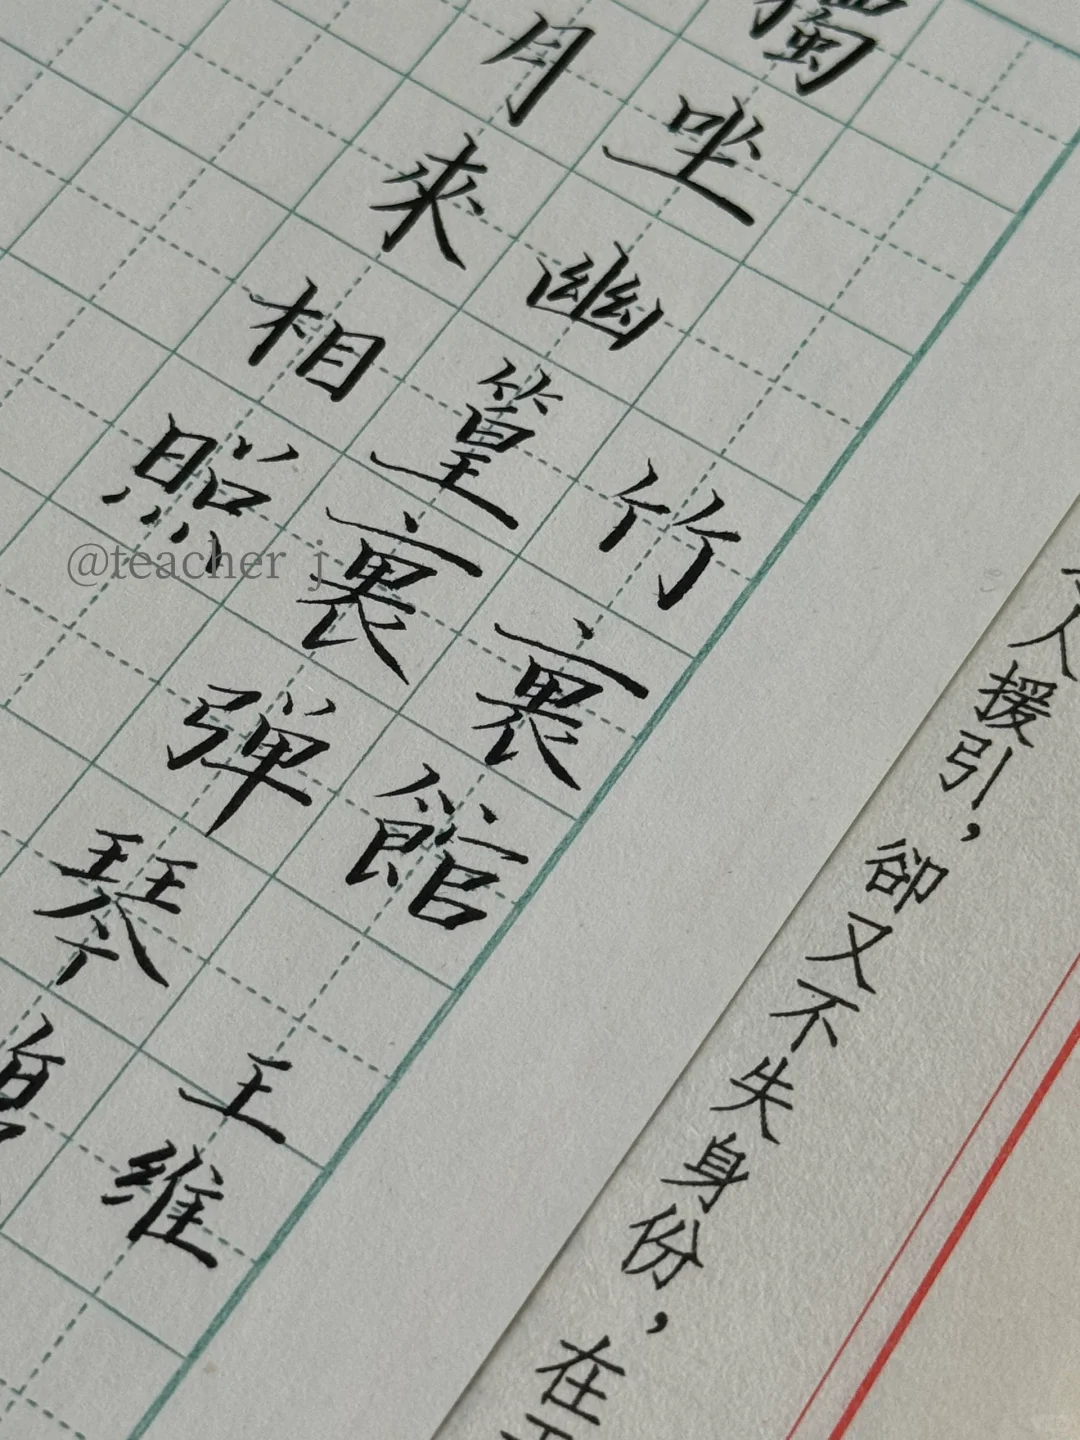 人援引，卻又不失身份，在
竹裏館 王维
獨坐幽篁裏弹琴
月來相照
@teacher j